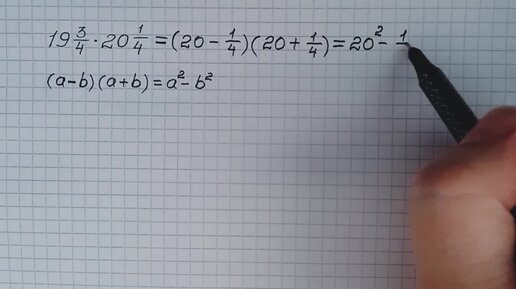 19 3/4 · 20 1/4 = (20 - 1/4)(20 + 1/4) = 20² - 1
(a-b)(a+b) = a² - b²